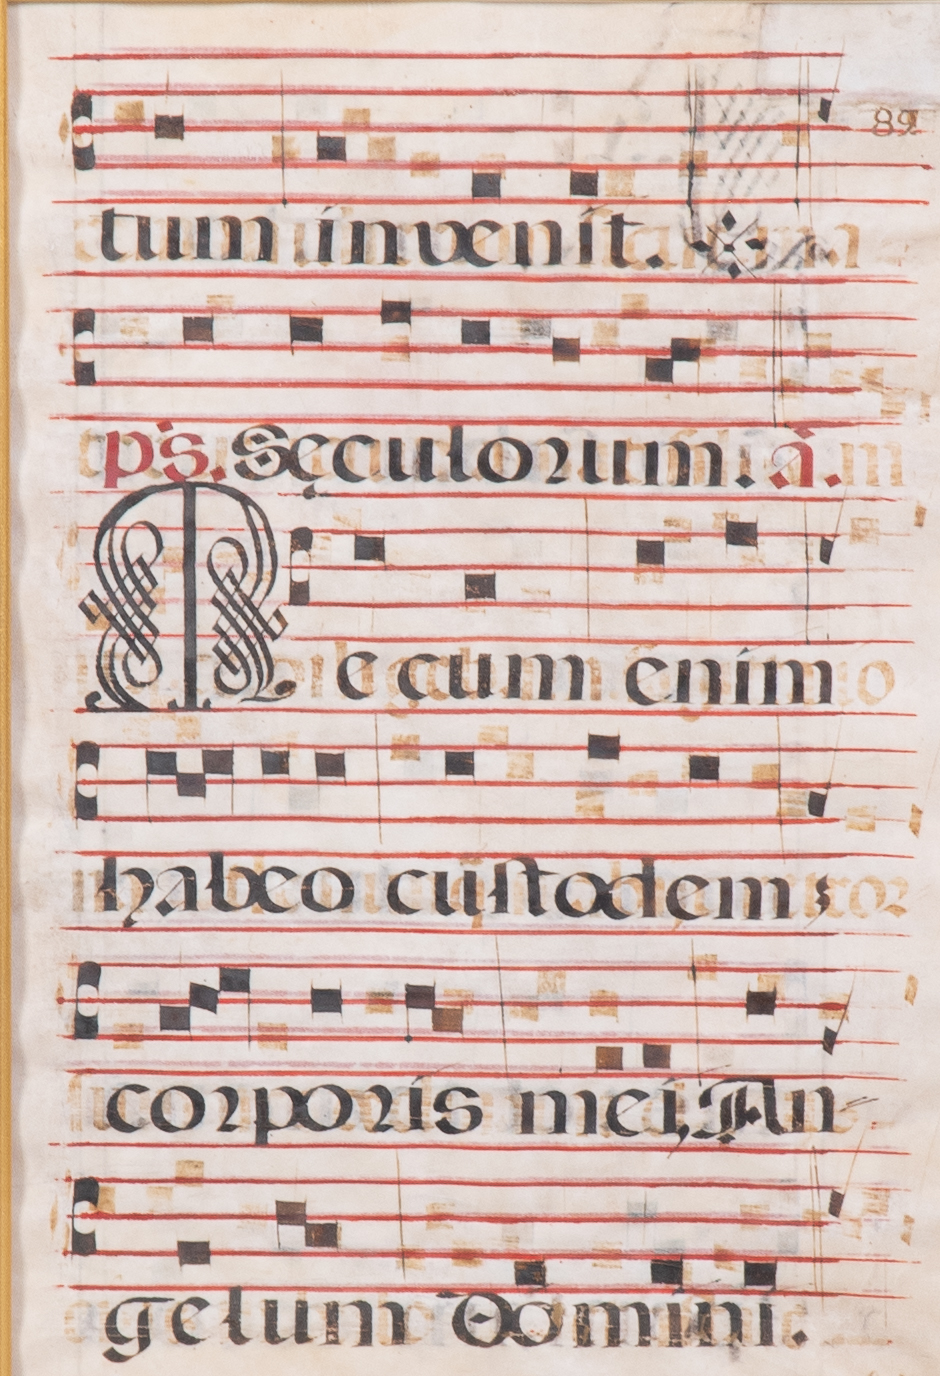 89
tum invenit.
ps. sęculorum. a.
Mecum enim
habeo custodem
corporis mei, An
gelum Domini.